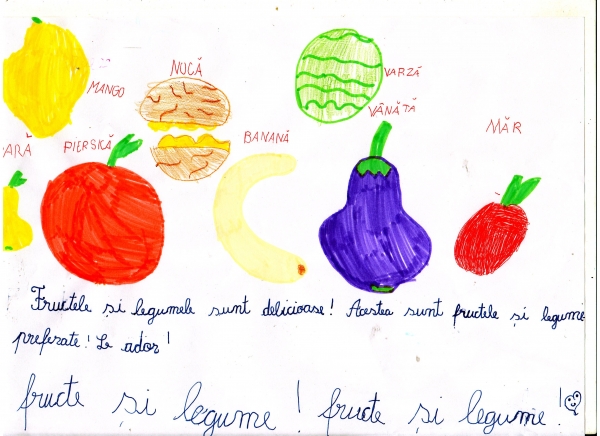 NUCĂ
VARZĂ
MANGO
VÂNĂTĂ
MĂR
ARĂ
PIERSICĂ
BANANĂ
Fructele și legumele sunt delicioase! Acestea sunt fructele și legume
preferate! Le ador!
fructe și legume! fructe și legume!